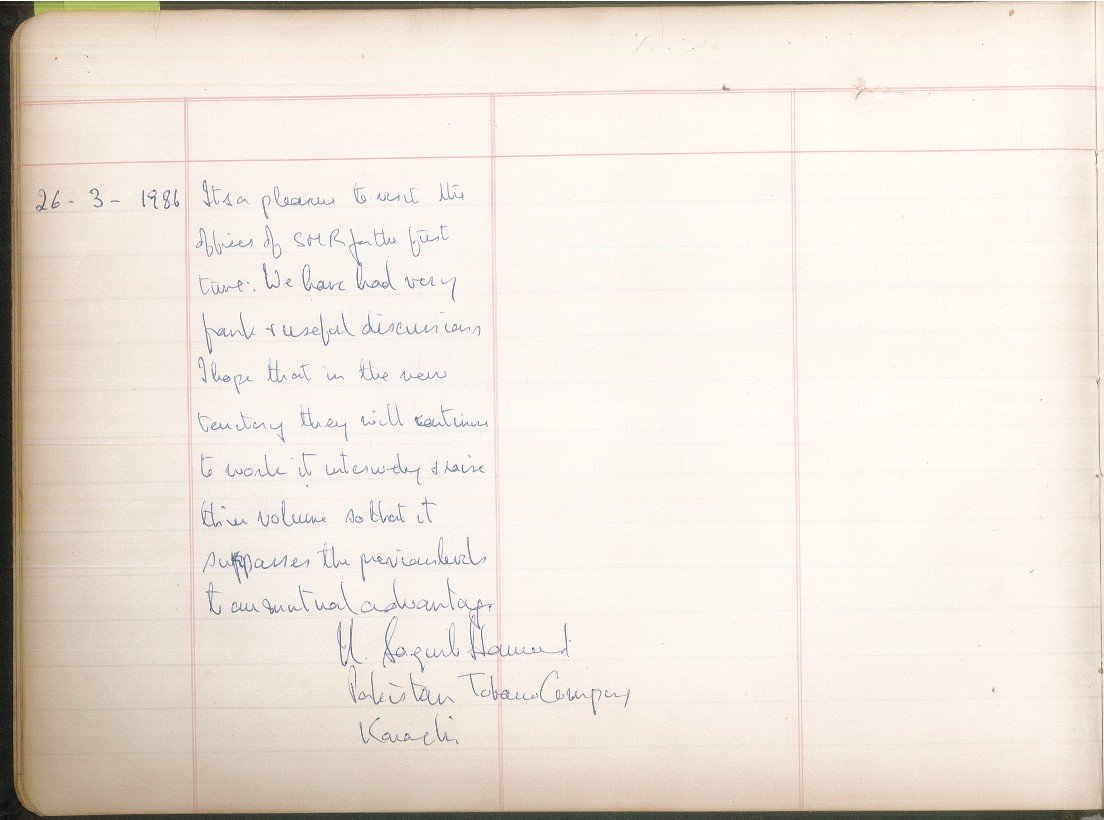 26-3-1986 Its a pleasure to visit the
offices of SMR for the first
time. We have had very
frank & useful discussions
I hope that in the new
territory they will continue
to work it intensively & raise
thier volume so that it
surpasses the previous levels
to our mutual advantage.
M. Saquib Hameed
Pakistan Tobacco Company
Karachi